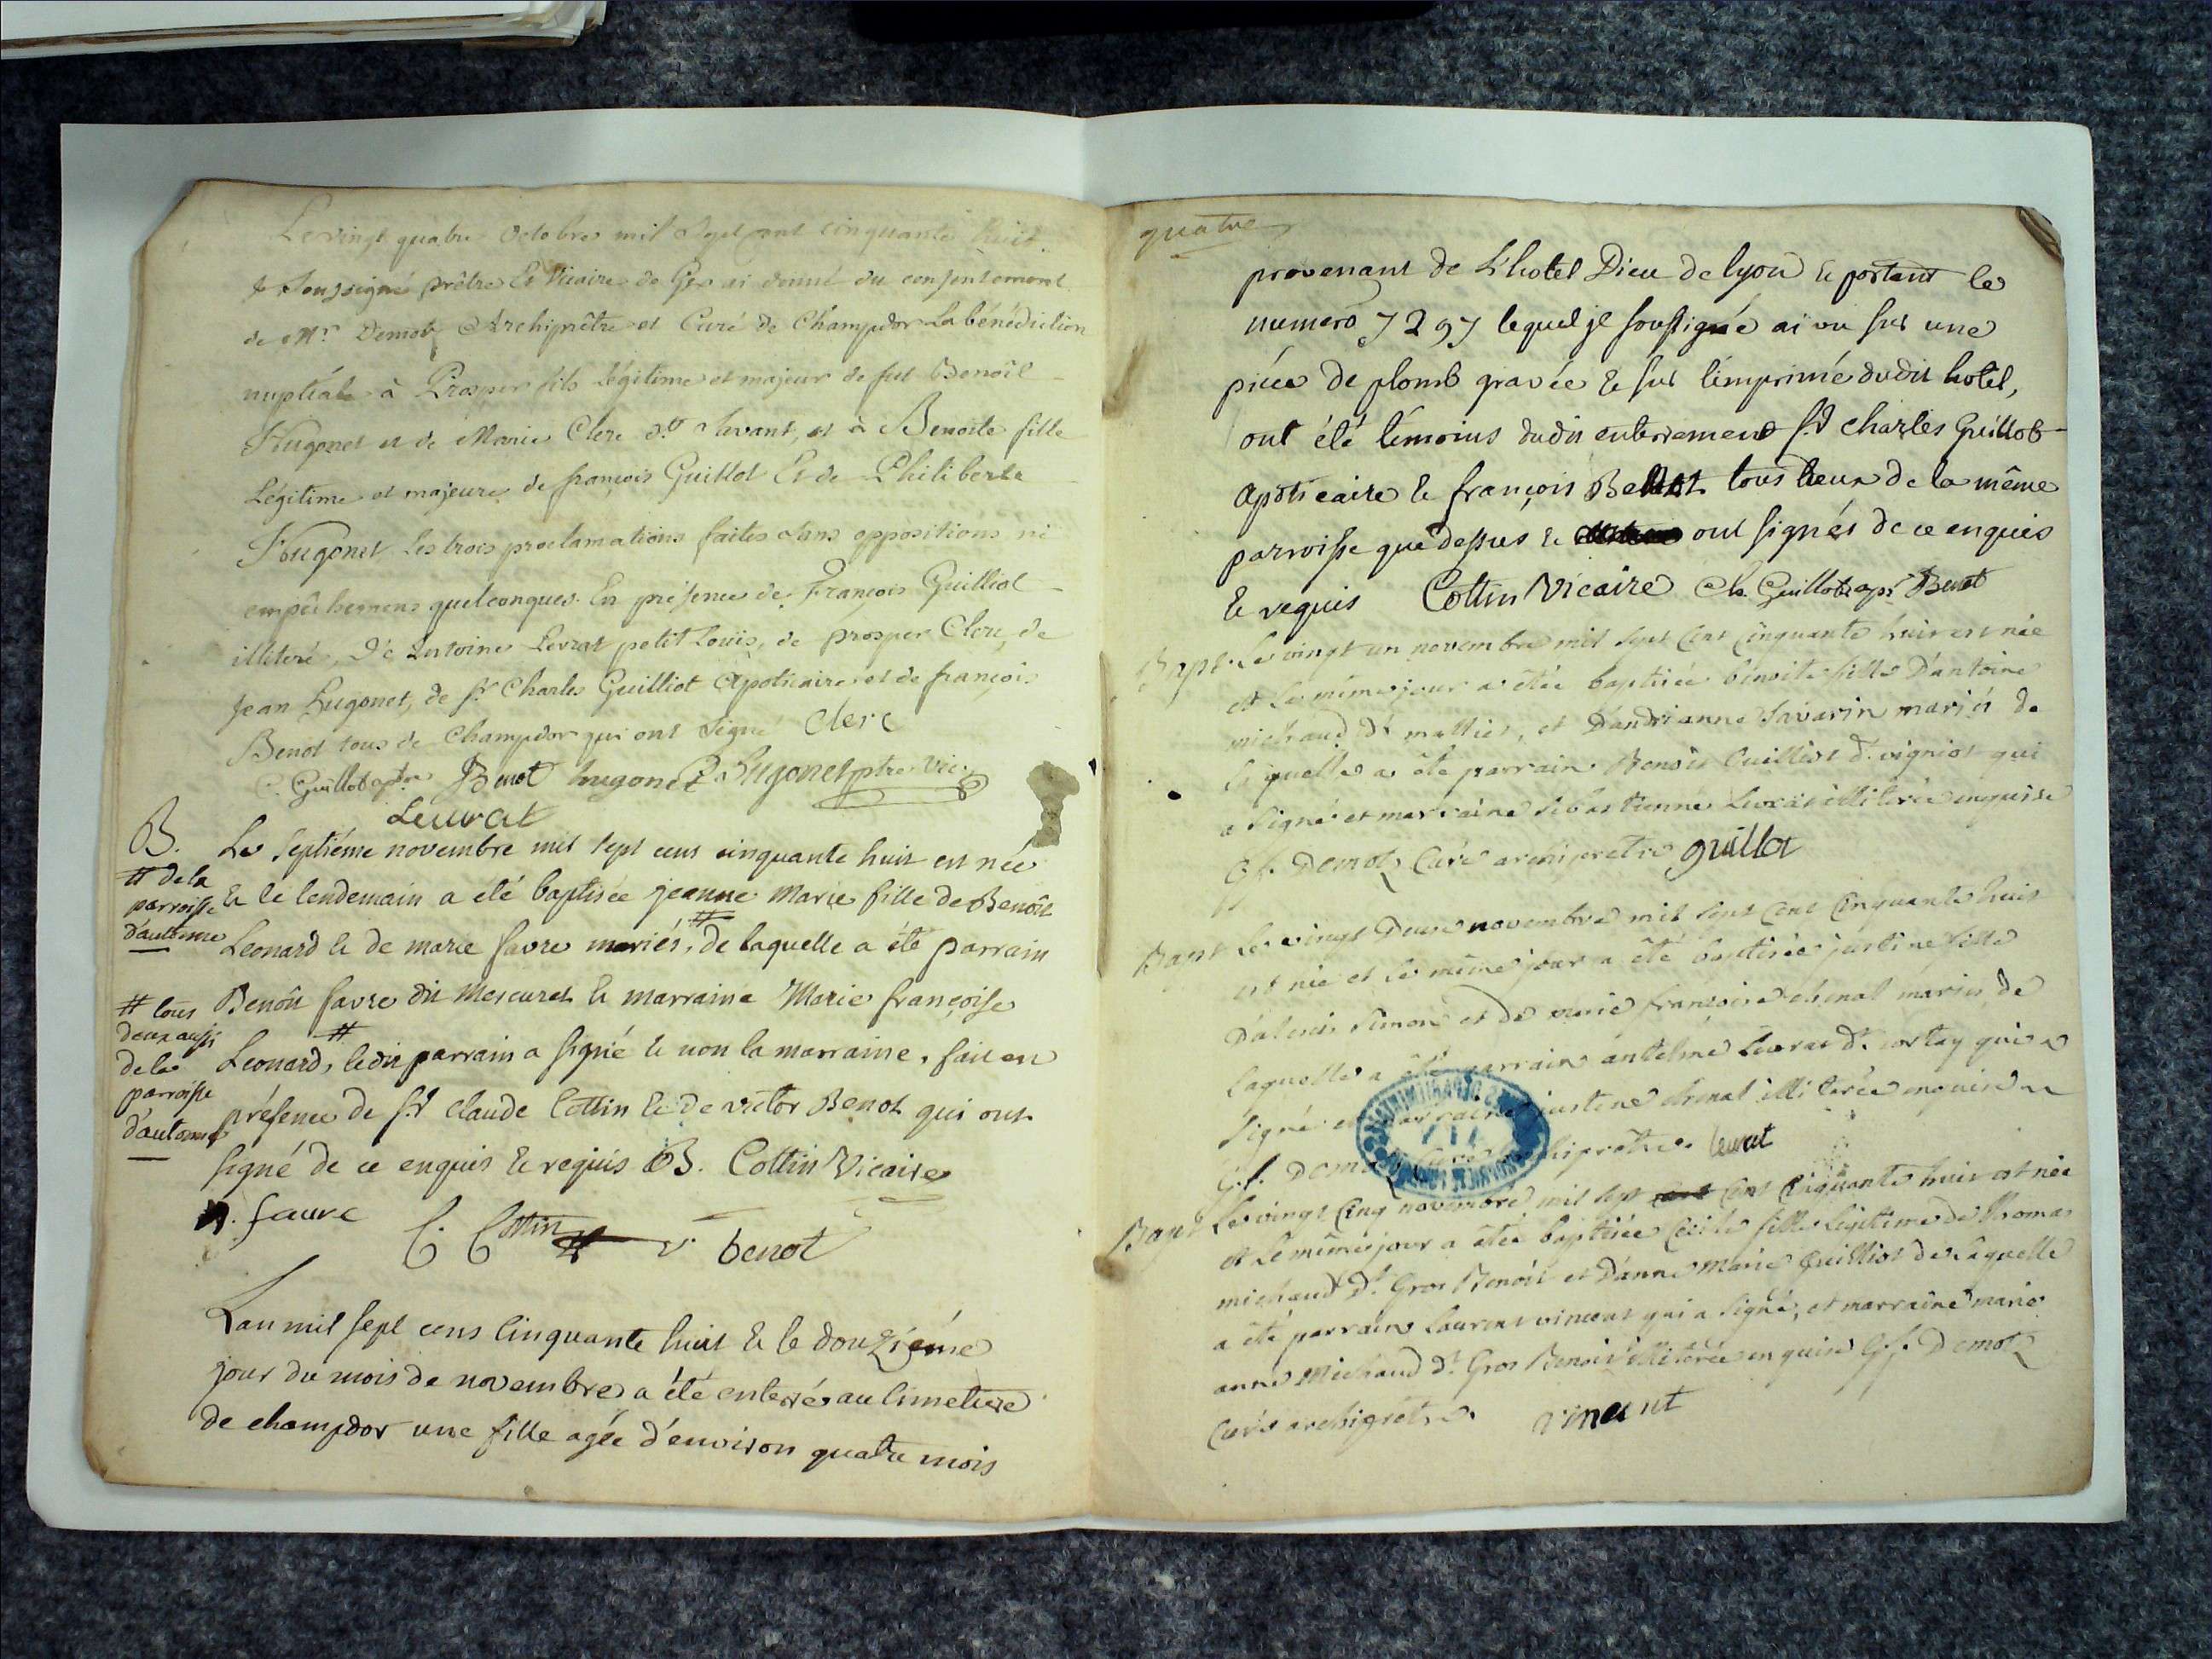 Le vingt quatre octobre mil sept cent cinquante huit
soussigné prêtre et Vicaire de Gex ai donné du consentement
de Mr. Demotz Archiprêtre et Curé de Champdor La bénédiction
nuptiale à Prosper fils légitime et majeur de feu Benoît
Hugonet et de Marie Clerc dt. Savant, et à Benoîte fille
Légitime et majeure de françois Guillot Et de Philiberte
Hugonet les trois proclamations faites sans oppositions ni
empêchemens quelconques. En présence de François Guilliot
illiteré, De Antoine Levrat petit Louis, de prosper Clerc, de
Jean Hugonet, de sr. Charles Guilliot Apoticaire et de françois
Benot tous de Champdor qui ont signé Clerc
C. Guillot apre. Benot hugonet Hugonet ptre vic.
Leurat
B. Le septiéme novembre mil sept cens cinquante huit est née
# de la
parroisse
d'autonne
& le lendemain a eté baptisée jeanne marie fille de Benoît
#
Leonard & de marie favre mariés, de laquelle a été parrain
Benoît favre dit Mercuret & marraine Marie françoise
# tous
deux aussi
de la
parroisse
d'autonne
#
Leonard, ledit parrain a signé & non la marraine, fait en
présence de sr. claude Cottin & de victor Benot qui ont
signé de ce enquis & requis B. Cottin Vicaire
B. faure C. Cottin v. benot
Lan mil sept cens Cinquante huit & le douziéme
jour du mois de novembre a été enterrée au Cimetiere
de champdor une fille agée d'environ quatre mois
quatre
provenant de L'hotel Dieu de lyon & portant le
numero 7297 lequel je soussigné ai vu sur une
piéce de plomb gravée & sur l'imprimé dudit hotel,
ont été témoins dudit enterrement sr. charles Guillot
apoticaire & françois Benot tous deux de la même
parroisse que dessus & ont signés de ce enquis
& requis Cottin Vicaire Ch. Guillot apr. Benot
Bapt. Le vingt un novembre mil sept cent cinquante huit est née
et le même jour a étée baptisée benoite fille D'antoine
michaud dt. mallier, et D'andrianne Savarin mariés de
laquelle a été parrain Benoit Guilliot dt. vigniot qui
a signé et marraine sebastienne Levrat illiterée enquise
G. f. Demotz Curé archiprêtre guillot
Bapt Le vingt Deux novembre mil sept cent Cinquante huit
est née et le même jour a été baptisée justine fille
D'alexis Simon et de marie françoise chenal mariés de
laquelle a été parrain antelme Levrat dt. qui a
signé et marraine justine chenal illiterée enquise
G. f. Demotz Curé archiprêtre. levrat
Bapt Le vingt Cinq novembre mil sept cent Cinquante huit est née
et le même jour a étée baptisée Cecile fille Légitime de Thomas
michaud dt. Gros Benoit et D'anne Marie Guilliot de Laquelle
a été parrain Laurent vincent qui a signé, et marraine marie
anne Michaud dt. Gros Benoit illiterée enquise G. f. Demotz
Curé archiprêtre. vincent